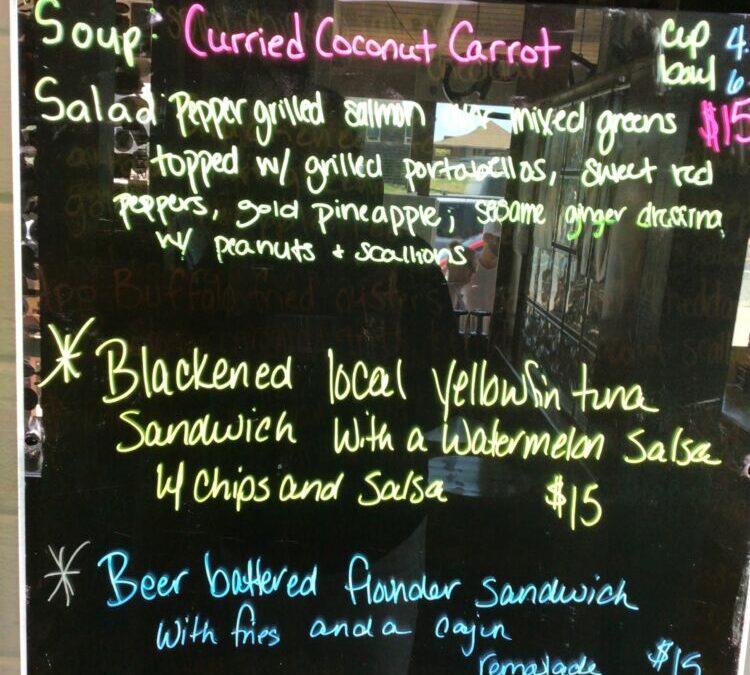 Soup Curried Coconut Carrot cup 4
bowl 6
Salad Pepper grilled salmon over mixed greens $15
topped w/ grilled portabellas, sweet red
peppers, gold pineapple; sesame ginger dressing
w/ peanuts + scallions
App Buffalo fried oysters
* Blackened local yellowfin tuna
Sandwich With a Watermelon Salsa
W/ Chips and Salsa $15
* Beer battered flounder sandwich
With fries and a cajun
remalade $15